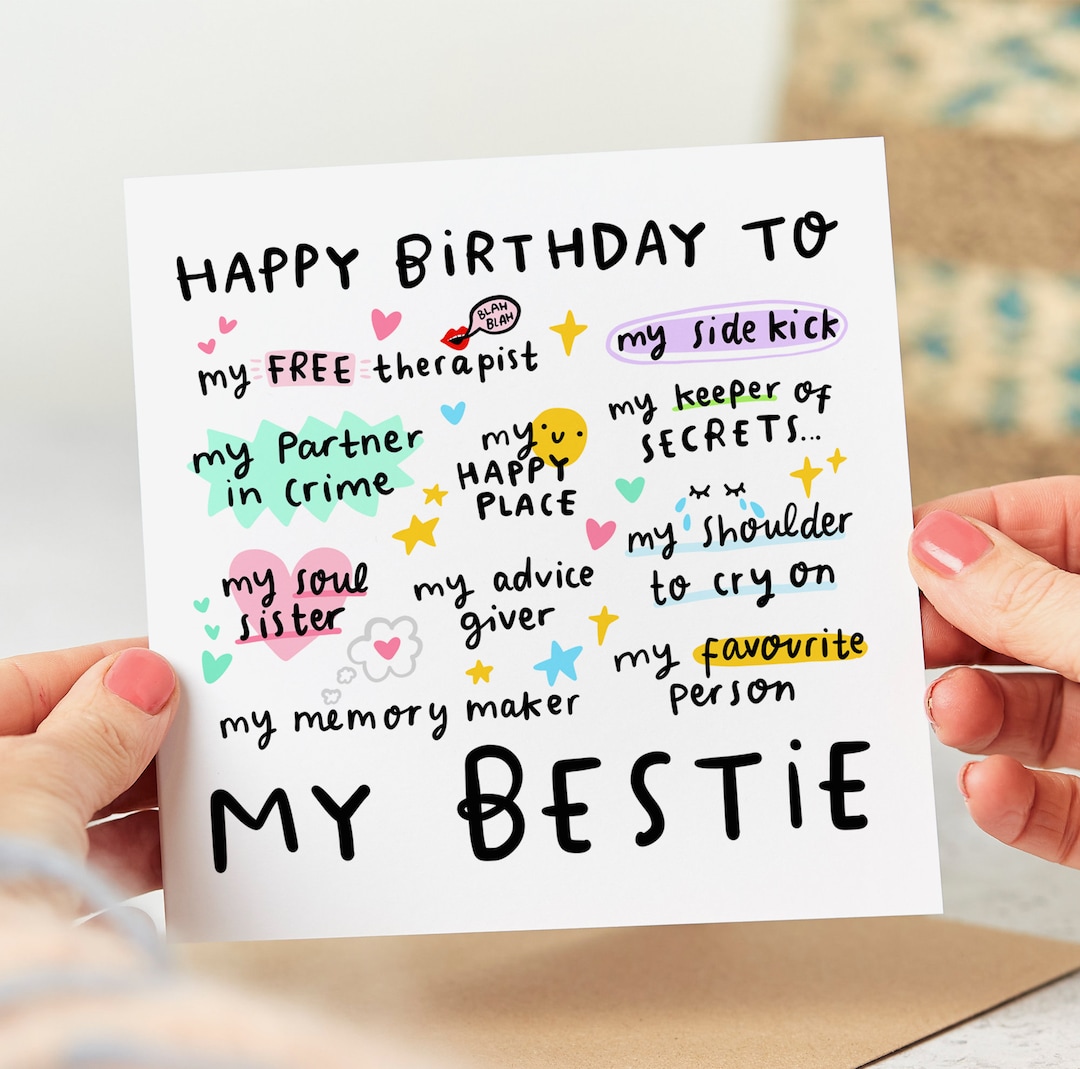 HAPPY BIRTHDAY TO
BLAH
BLAH
my FREE therapist
my side kick
my Partner
in crime
my
HAPPY
PLACE
my keeper of
SECRETS...
my soul
sister
my advice
giver
my shoulder
to cry on
my memory maker
my favourite
person
MY BESTIE